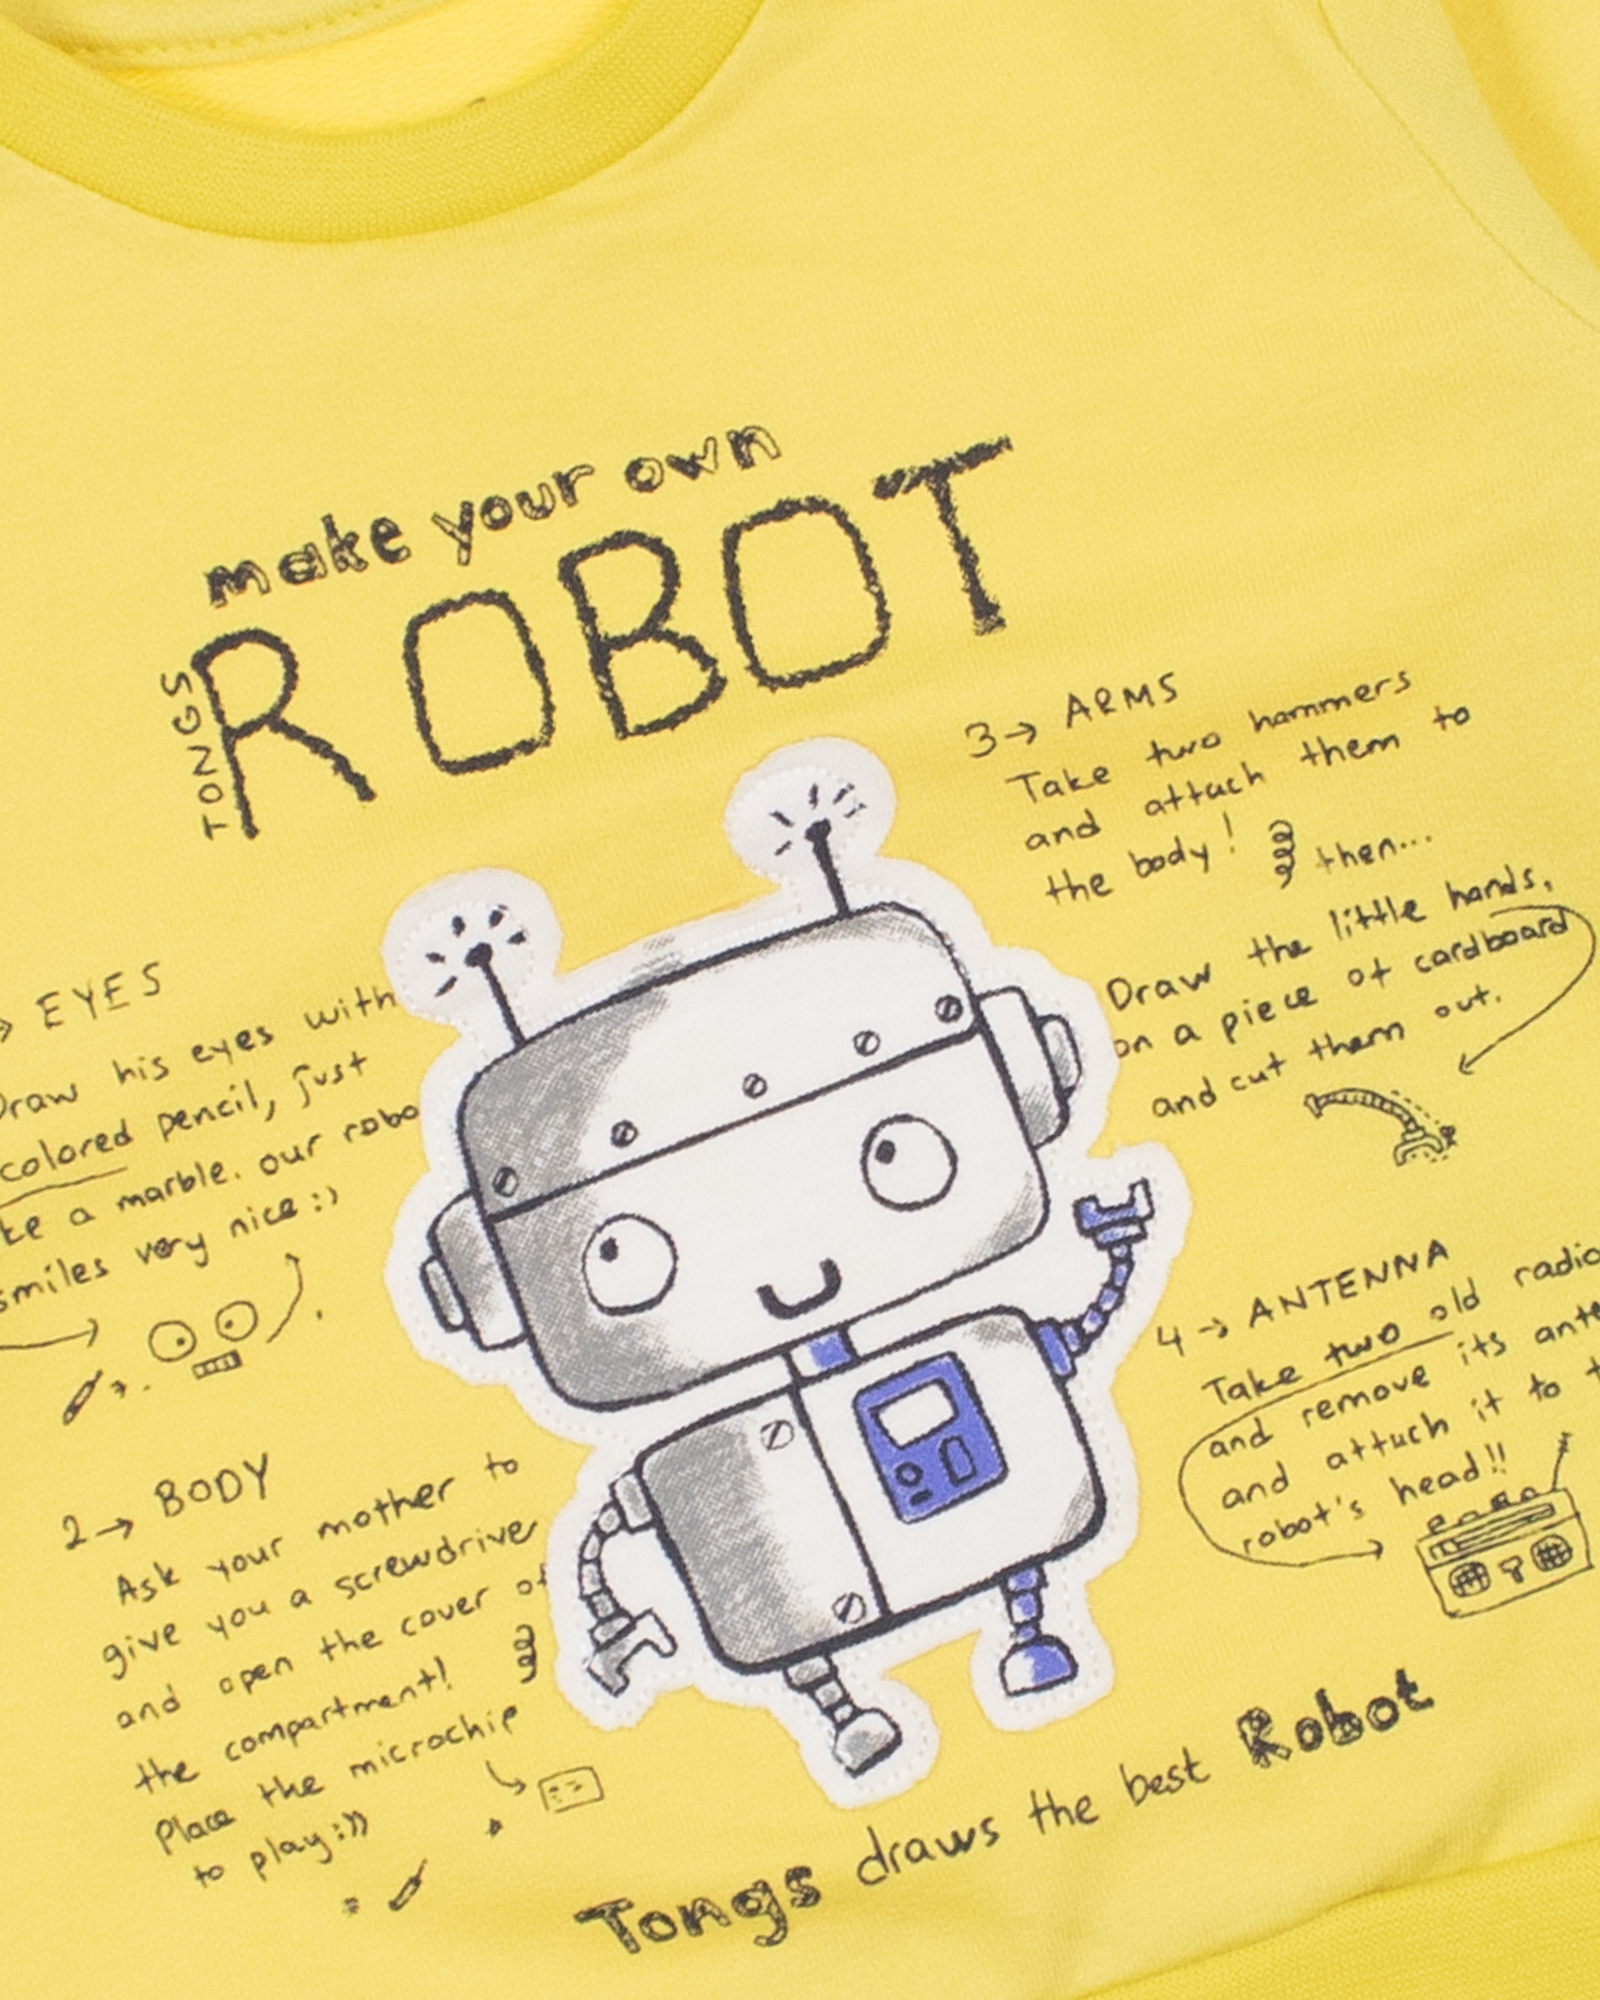 make your own
ROBOT
TONGS
EYES
Draw his eyes with
colored pencil, just
a marble. our
smiles very nice :)
2→ BODY
Ask your mother to
give you a screwdrive
and open the cover of
the compartment!
Place the microchip
to play :))
3→ ARMS
Take two hammers
and attach them to
the body! then...
Draw the little hands,
on a piece of cardboard
and cut them out.
4→ ANTENNA
Take two old radio
and remove its
and attach it to
robot's head!!
Tongs draws the best Robot